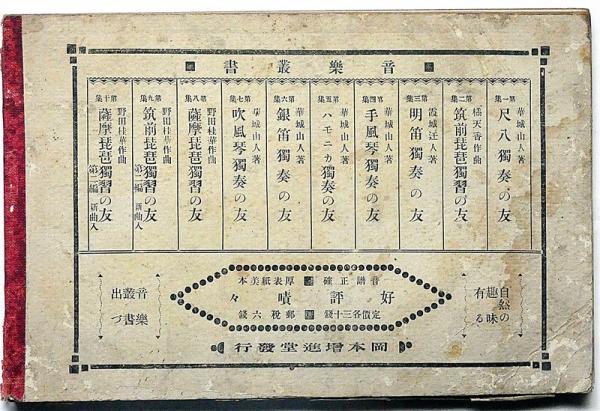 音樂叢書
第一集 華城山人著
尺八獨奏の友
第二集 橘天香作曲
筑前琵琶獨習の友
第三集 霞城迂人著
明笛獨奏の友
第四集 華城山人著
手風琴獨奏の友
第五集 華城山人著
ハモニカ獨奏の友
第六集 華城山人著
銀笛獨奏の友
第七集 華城山人著
吹風琴獨奏の友
第八集 野田桂華作曲
薩摩琵琶獨習の友
第九集 野田桂華作曲
筑前琵琶獨習の友 第二編 新曲入
第十集 野田桂華作曲
薩摩琵琶獨習の友 第二編 新曲入
自然の
趣味
有る
音譜正確 厚表紙美本
好評嘖々
定價各三十錢 郵稅六錢
音樂
叢書
出づ
岡本增進堂發行